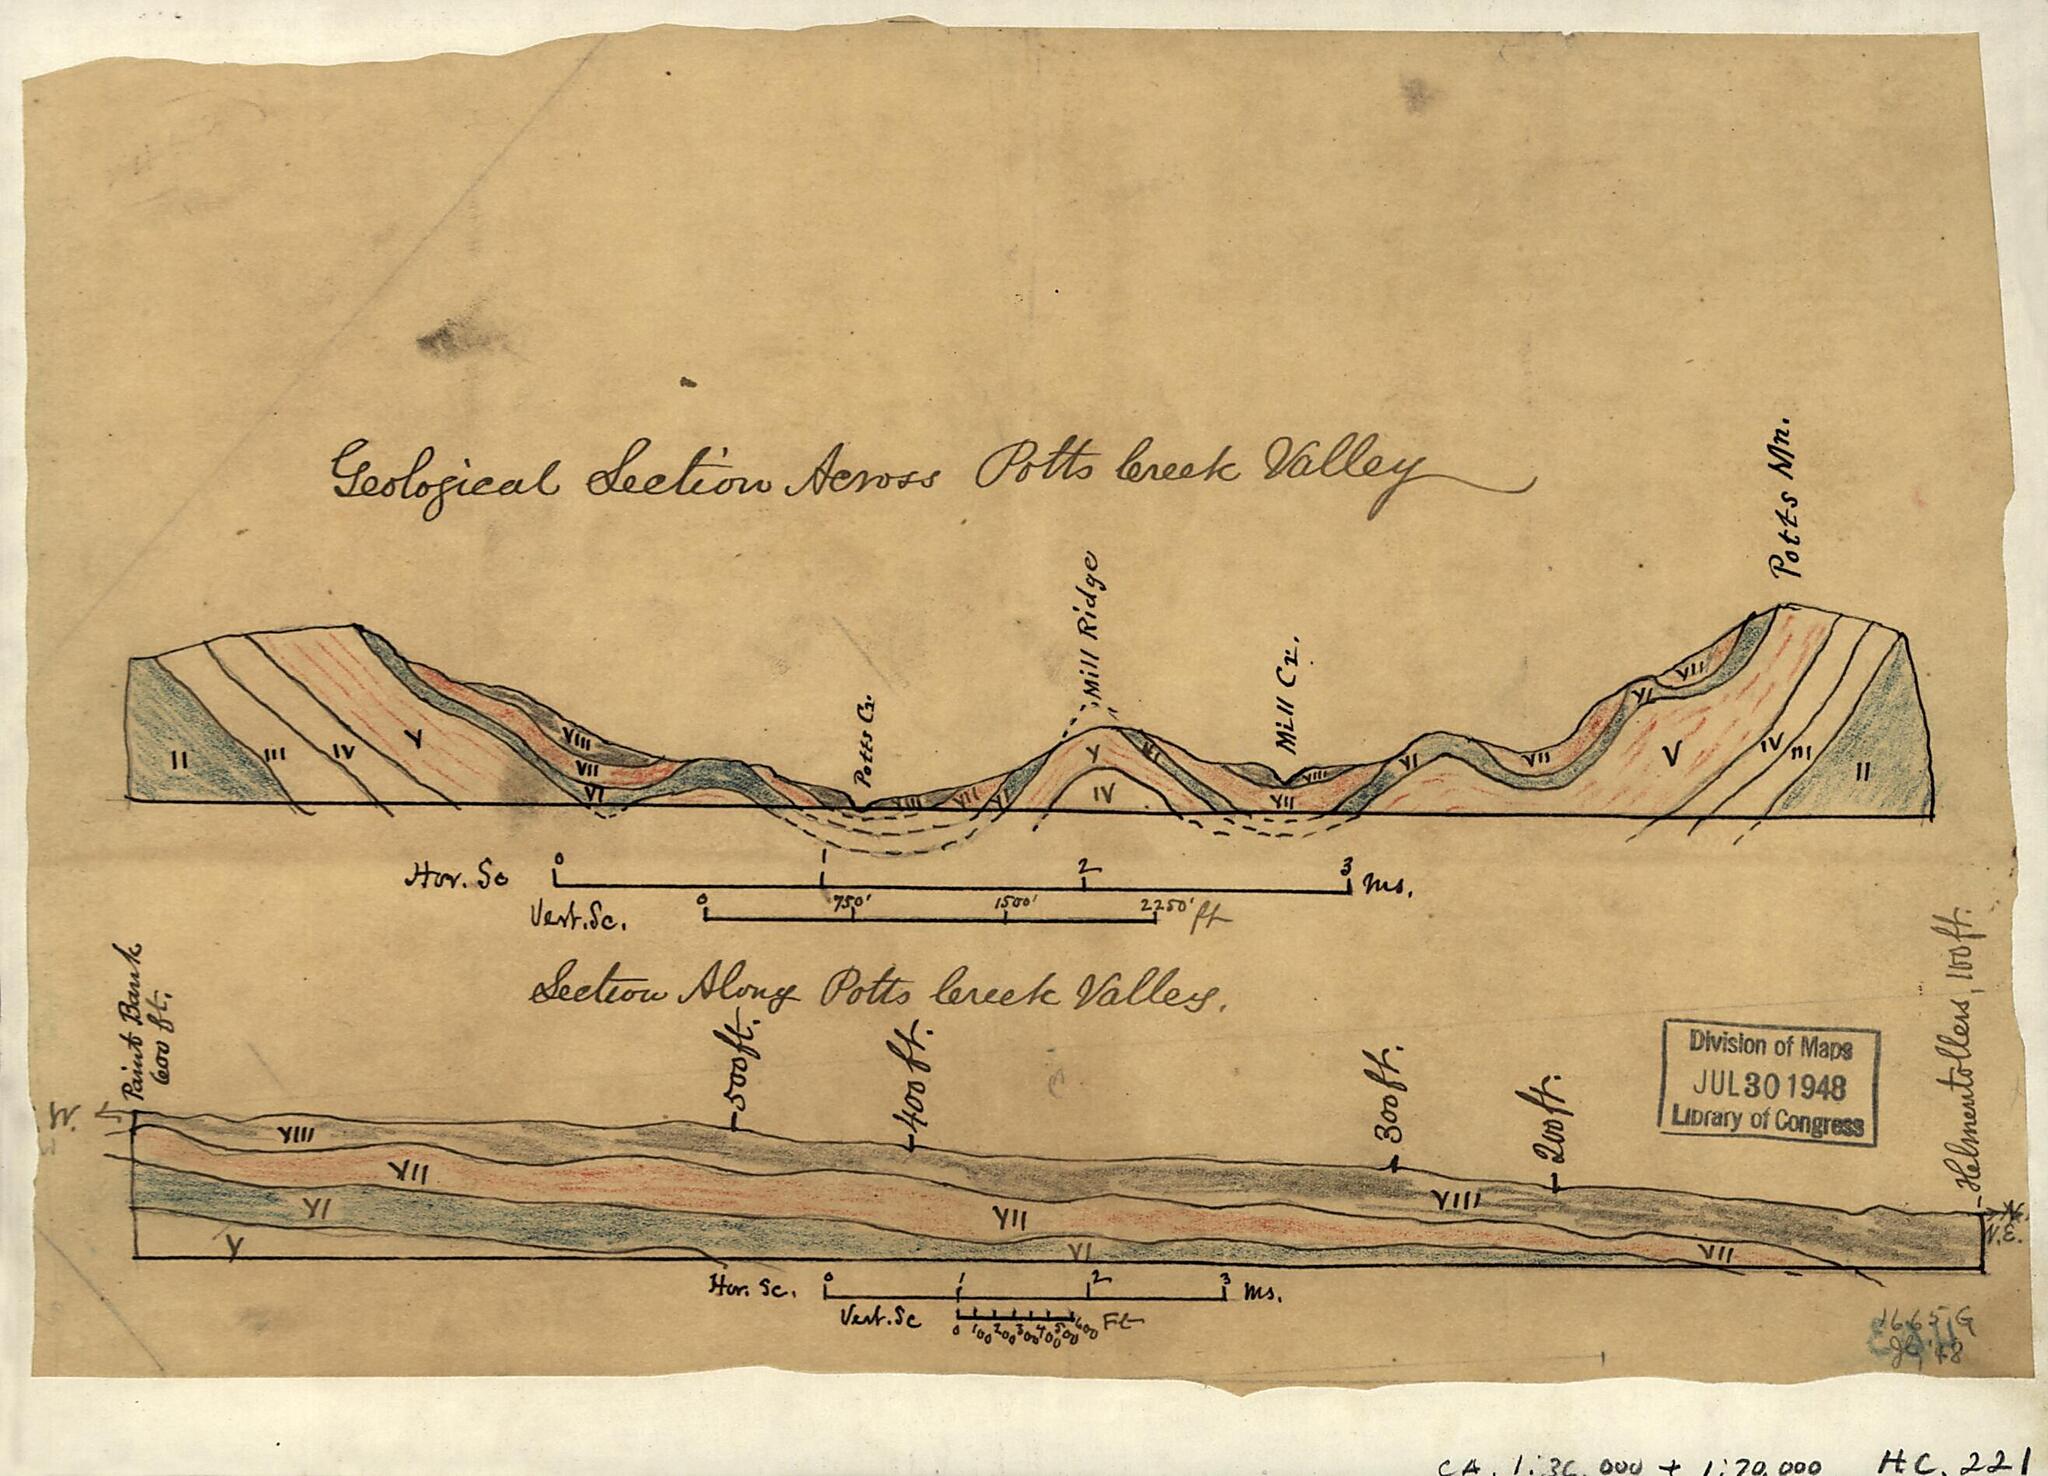 Geological Section Across Potts Creek Valley
Potts Mn.
Mill Ridge
Mill Cr.
Potts Cr.
II III IV V VI VII VIII VIII VII VI V VI IV VII VIII VI VII VI VII V IV III II
Hor. Sc 0 1 2 3 ms.
Vert. Sc. 0 750' 1500' 2250' ft
Section Along Potts Creek Valley.
Paint Bank
600 ft.
500 ft.
400 ft.
300 ft.
200 ft.
Helmentollers, 100 ft.
Division of Maps
JUL 30 1948
Library of Congress
W.
N.E.
VIII VII VI V VII VI VIII VII
Hor. Sc. 0 1 2 3 ms.
Vert. Sc 0 100 200 300 400 500 600 Ft
1665 G
48
CA. 1:36,000 + 1:70,000 HC. 221